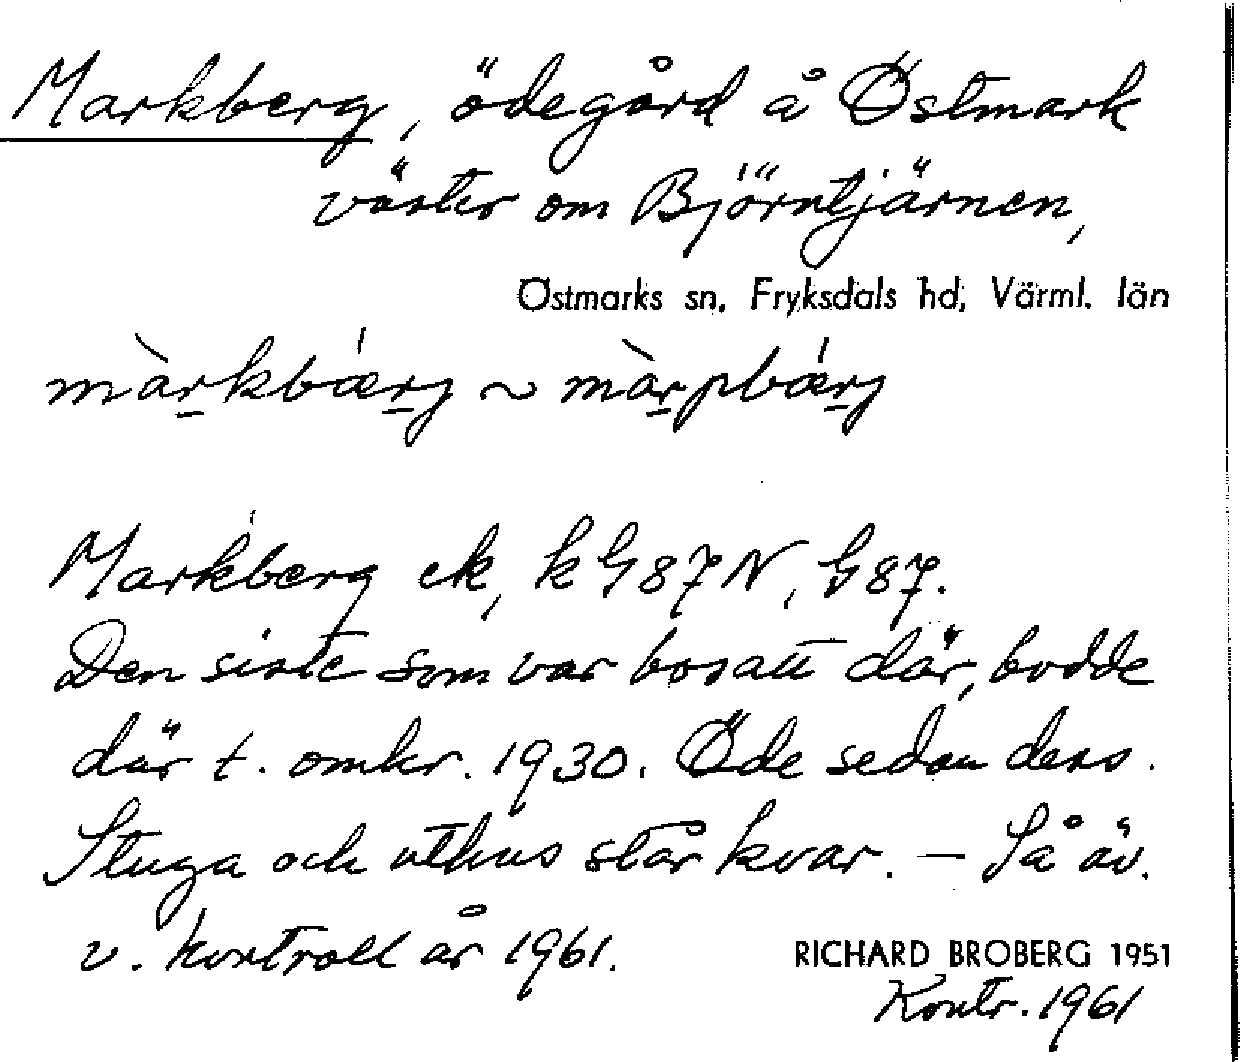 Markberg, ödegård å Östmark
väster om Björntjärnen,
Östmarks sn, Fryksdals hd, Värml. län
màrkbǽrj ~ màrpbǽrj
Markberg ek, k G 87 N, G 87.
Den siste som var bosatt där, bodde
där t. omkr. 1930. Öde sedan dess.
Stuga och uthus står kvar. — Så äv.
v. kontroll år 1961.
RICHARD BROBERG 1951
Kontr. 1961